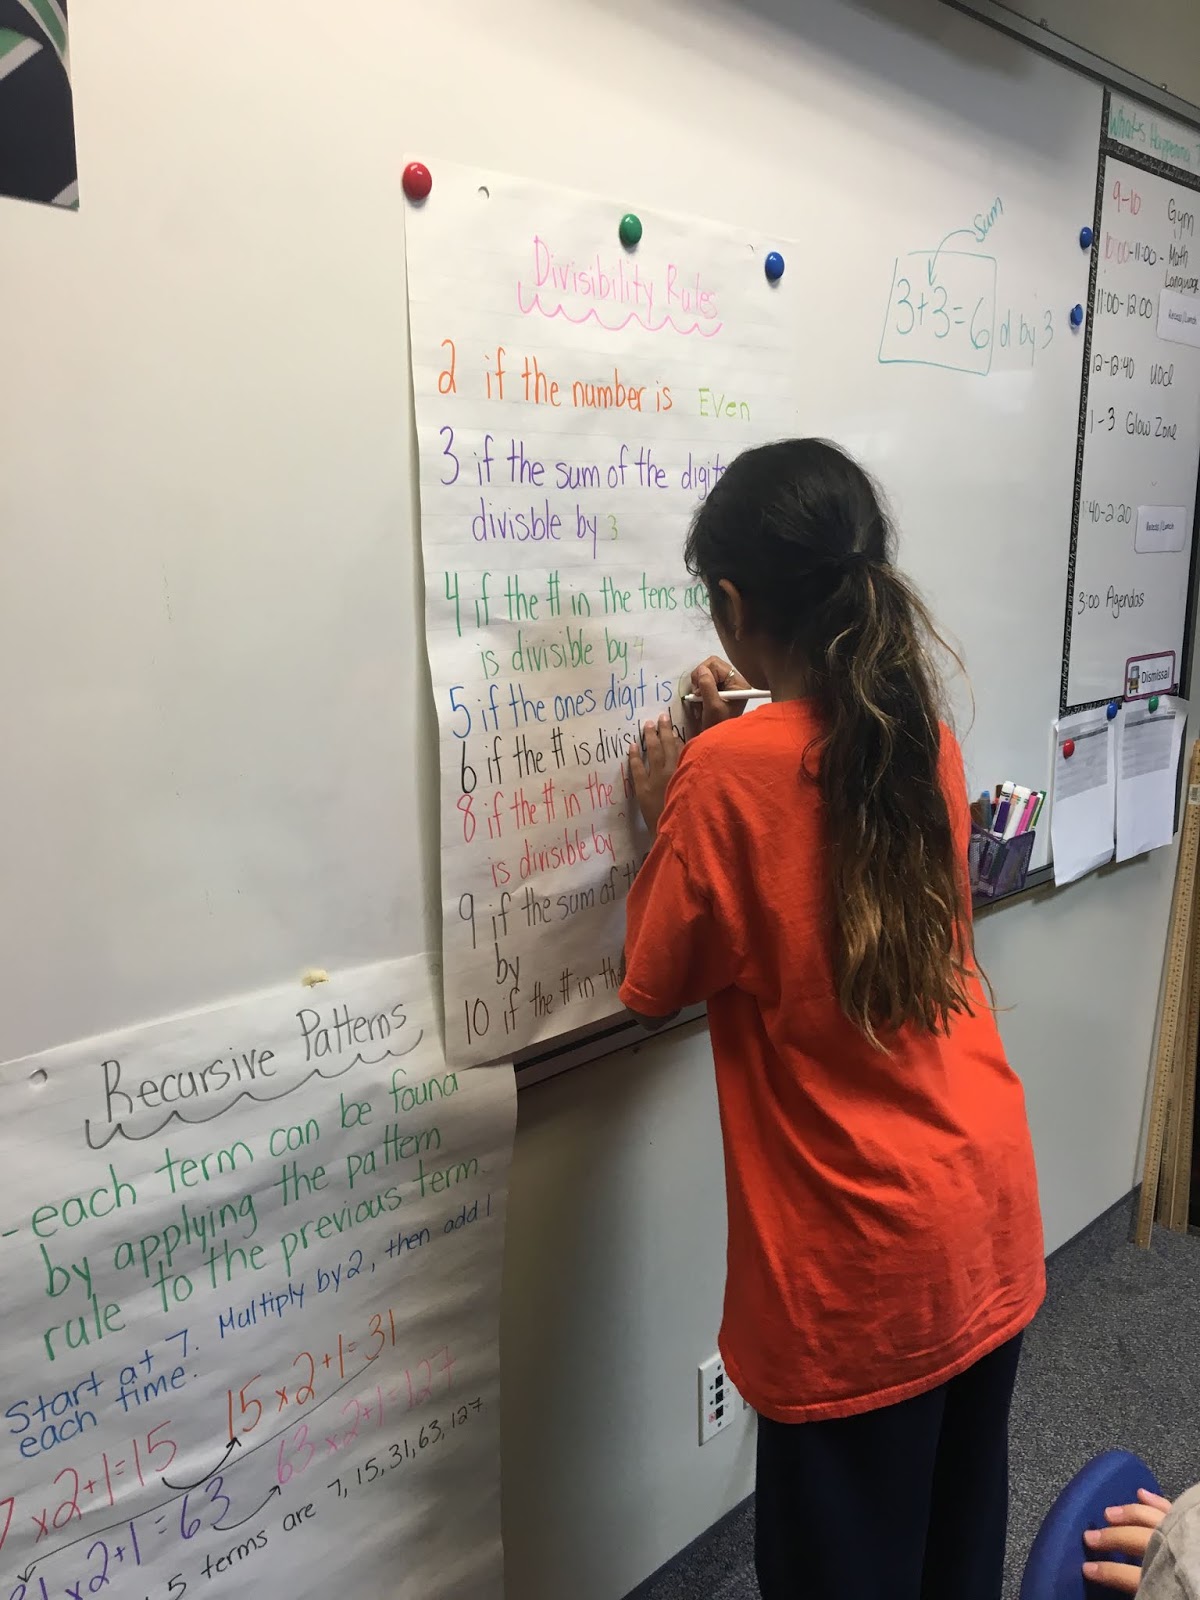 Divisibility Rules
2 if the number is Even
3 if the sum of the digits
divisble by 3
4 if the # in the tens
is divisible by 4
5 if the ones digit is
6 if the # is by
8 if the # in the
is divisible by
9 if the sum of
by
10 if the # in the
Sum
3+3=6 d by 3
What's Happening
9-10 Gym
10:00-11:00- Math
Language
11:00-12:00 Recess/Lunch
12-12:40
1-3 Glow Zone
1:40-2:20 Recess/Lunch
3:00 Agendas
Dismissal
Recursive Patterns
- each term can be found
by applying the pattern
rule to the previous term.
Start at 7. Multiply by 2, then add 1
each time.
7x2+1=15 15x2+1=31
x2+1=63 63x2+1=127
5 terms are 7, 15, 31, 63, 127